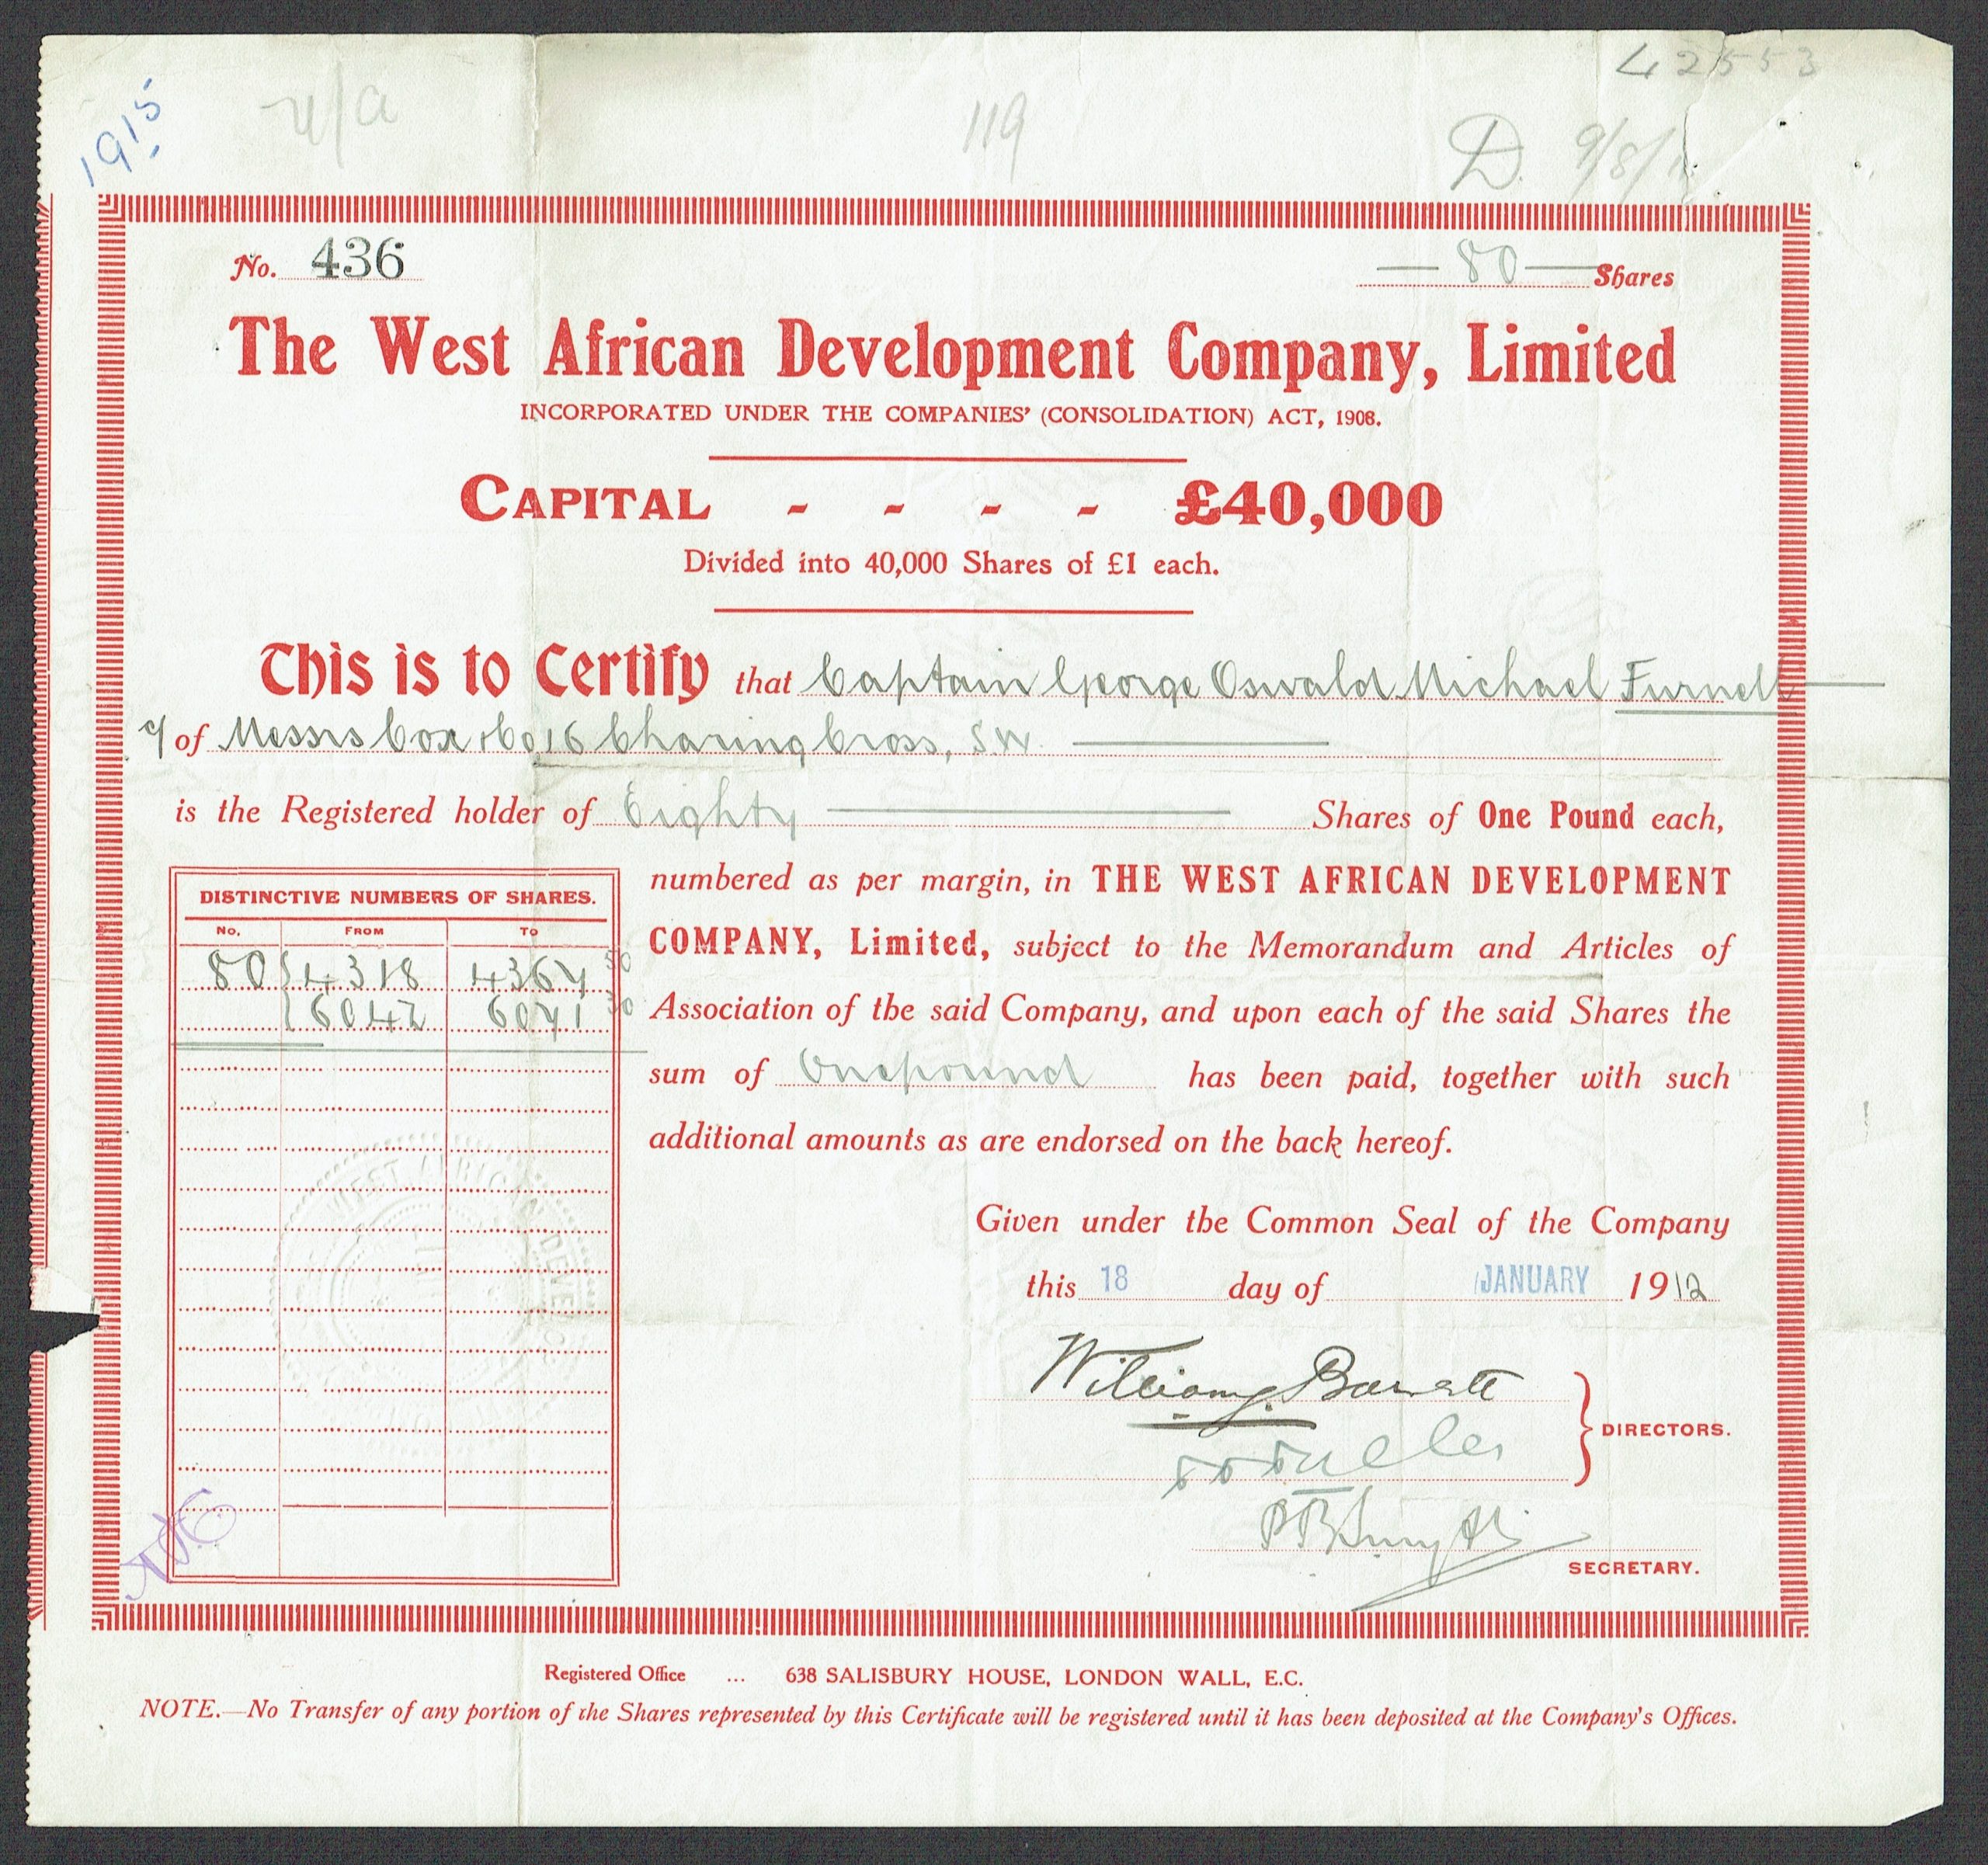 1915
n/a
119
42553
D. 9/8/12
No. 436
— 80 — Shares
The West African Development Company, Limited
INCORPORATED UNDER THE COMPANIES' (CONSOLIDATION) ACT, 1908.
CAPITAL - - - - £40,000
Divided into 40,000 Shares of £1 each.
This is to Certify that Captain George Oswald Michael Furnell
c/ of Messrs Cox & Co 16 Charing Cross, S.W.
is the Registered holder of Eighty Shares of One Pound each,
numbered as per margin, in THE WEST AFRICAN DEVELOPMENT
COMPANY, Limited, subject to the Memorandum and Articles of
Association of the said Company, and upon each of the said Shares the
sum of One pound has been paid, together with such
additional amounts as are endorsed on the back hereof.
DISTINCTIVE NUMBERS OF SHARES.
No. FROM TO
80 { 4318 4367 50
{ 6042 6071 30
WEST AFRICAN DEVELOP
Given under the Common Seal of the Company
this 18 day of JANUARY 1912
William Barratt
DIRECTORS.
SECRETARY.
Registered Office ... 638 SALISBURY HOUSE, LONDON WALL, E.C.
NOTE.—No Transfer of any portion of the Shares represented by this Certificate will be registered until it has been deposited at the Company's Offices.